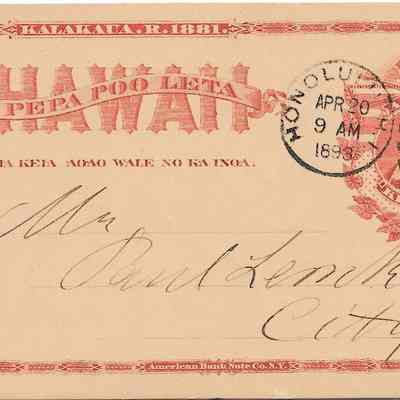 KALAKAUA.R.1881.
HAWAII
PEPA POO LETA
MA KEIA AOAO WALE NO KA INOA.
HONOLULU
APR 20
9 AM
1893
Mr.
Paul
City
American Bank Note Co. N.Y.